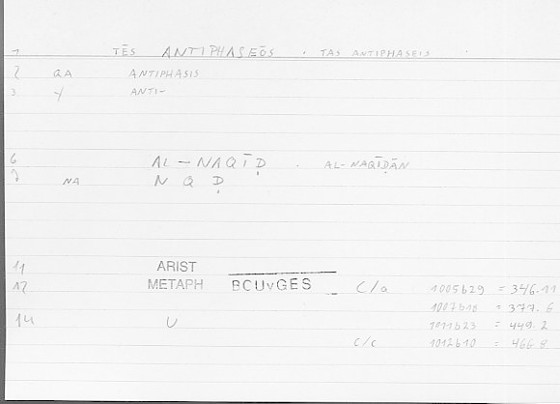 1 TĒS ANTIPHASEŌS . TAS ANTIPHASEIS .
2 QA ANTIPHASIS
3 Y ANTI-
6 AL-NAQĪḌ . AL-NAQĪḌĀN
7 NA N Q Ḍ
11 ARIST
12 METAPH BCUvGES C/a 1005b29 = 346.11
1007b18 = 377.6
14 U 1011b23 = 449.2
C/c 1012b10 = 466.8